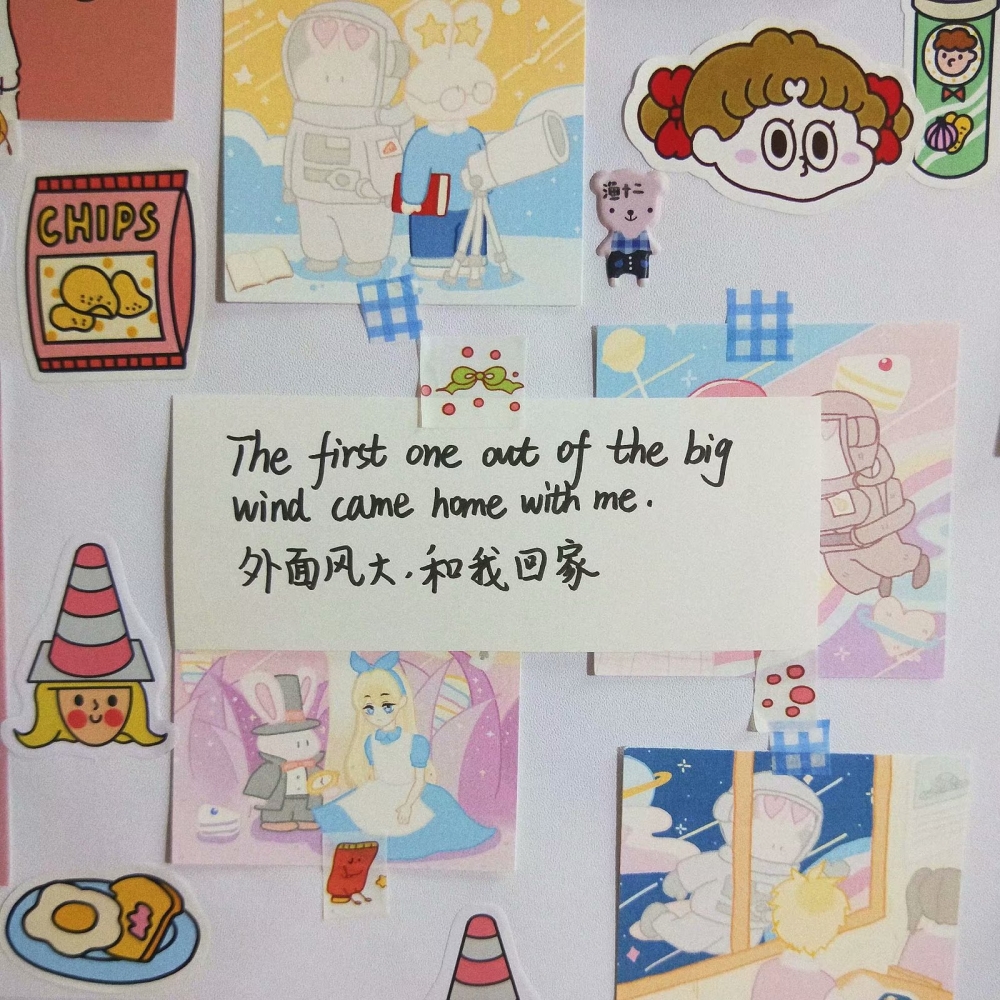 CHIPS
The first one out of the big
wind came home with me.
外面风大.和我回家